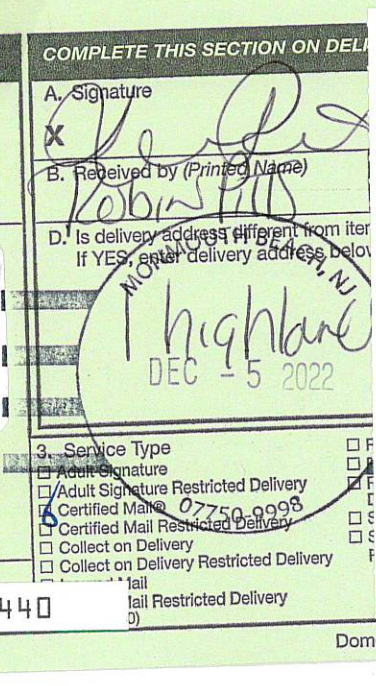 COMPLETE THIS SECTION ON DEL
A. Signature
X
B. Received by (Printed Name)
Robin Pitts
D. Is delivery address different from iter
If YES, enter delivery address below
MONMOUTH BEACH, NJ
1 highland
DEC - 5 2022
07750-9998
3. Service Type
□ Adult Signature
□ Adult Signature Restricted Delivery
□ Certified Mail®
□ Certified Mail Restricted Delivery
□ Collect on Delivery
□ Collect on Delivery Restricted Delivery
Mail
Mail Restricted Delivery
0)
440
Dom